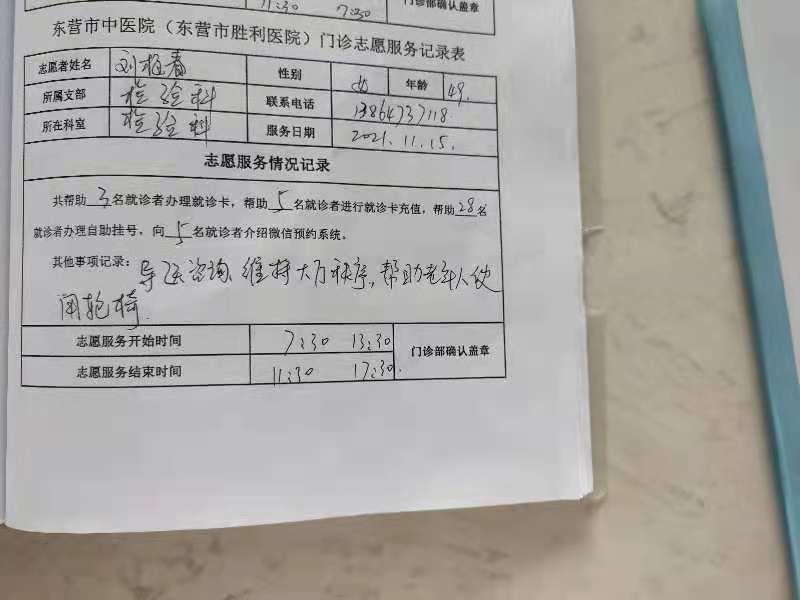 11:30 7:30 门诊部确认盖章
东营市中医院（东营市胜利医院）门诊志愿服务记录表
志愿者姓名 刘梅春 性别 女 年龄 49.
所属支部 检验科 联系电话 13864737118
所在科室 检验科 服务日期 2021.11.15.
志愿服务情况记录
共帮助3名就诊者办理就诊卡，帮助5名就诊者进行就诊卡充值，帮助28名
就诊者办理自助挂号，向5名就诊者介绍微信预约系统。
其他事项记录：导医咨询、维持大厅秩序，帮助老年人使
用轮椅.
志愿服务开始时间 7:30 13:30 门诊部确认盖章
志愿服务结束时间 11:30 17:30.